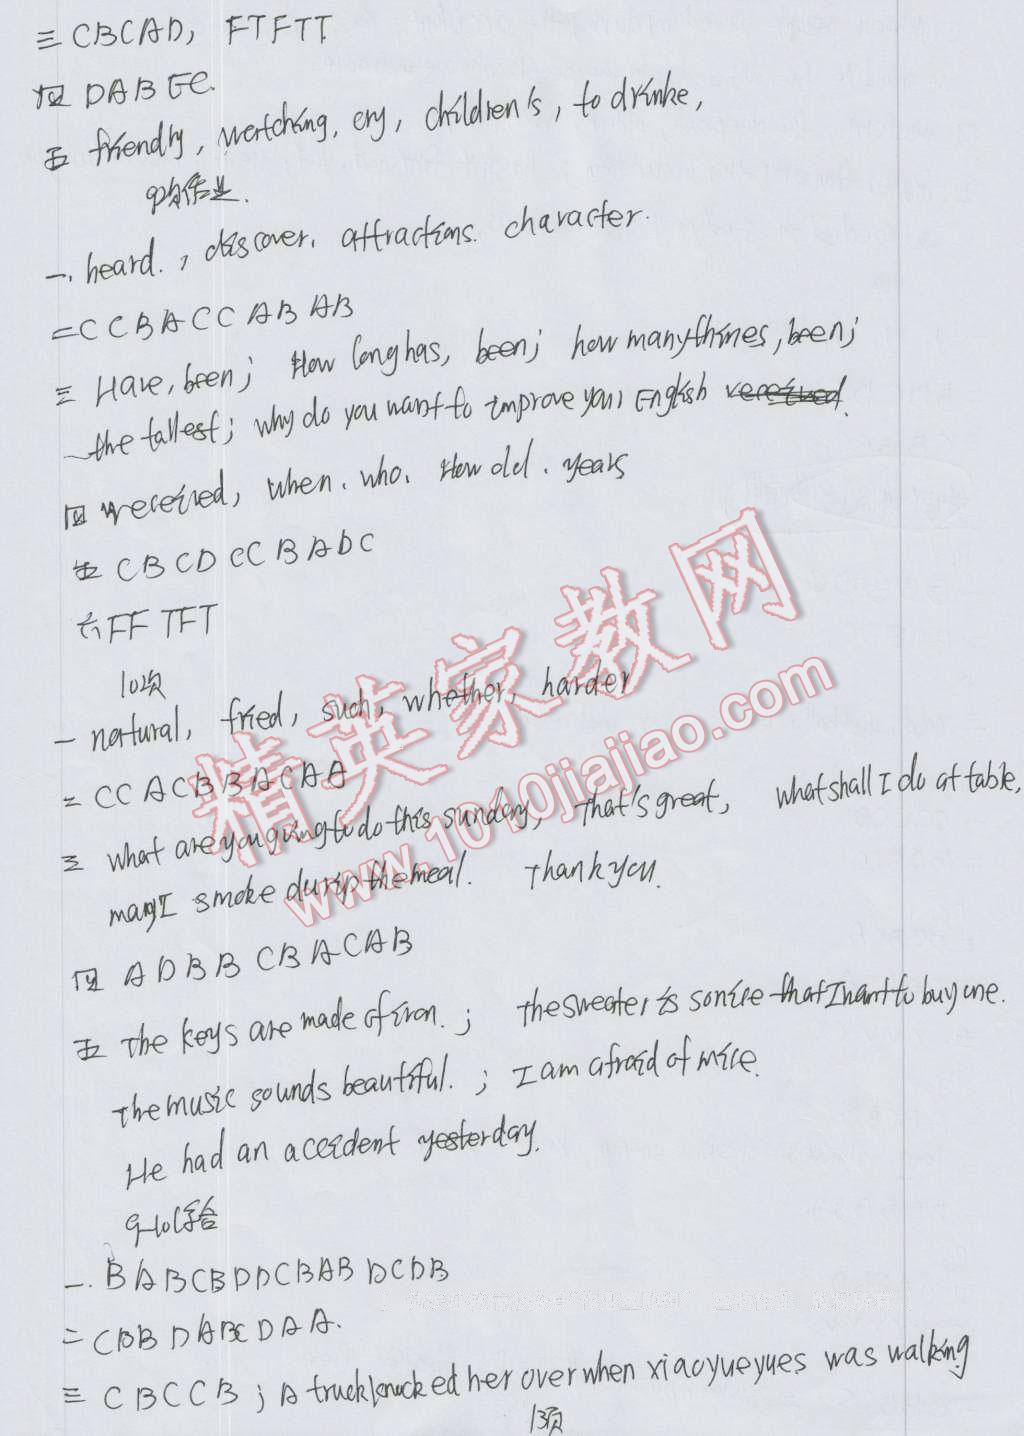 三 CBCAD, FTFTT
四 DABEC.
五 friendly, watching, cry, children's, to drinke,
一. heard., discover. attractions. character.
二 C C B A C C A B A B
三 Have, been; How long has, been; how many thimes, been;
the tallest; why do you want to improve your English
四 received, when. who. How old. years
五 C B C D C C B A D C
六 F F T F T
10项
一 natural, fried, such, whether, harder
二 C C A C B B A C A A
三 what are you going to do this sunday, That's great, what shall I do at table,
may I smoke durip the meal. Thank you.
四 A D B B C B A C A B
五 The keys are made of iron.; the sweater is so nice that I want to buy one.
The music sounds beautiful.; I am afraid of mice.
He had an accident yesterday.
9-10综合
一. B A B C B D D C B A B D C D B
二 C B B D A B C D A A.
三 C B C C B; A truck knocked her over when xiaoyueyues was walking
13项
精英家教网
www.1010jiajiao.com